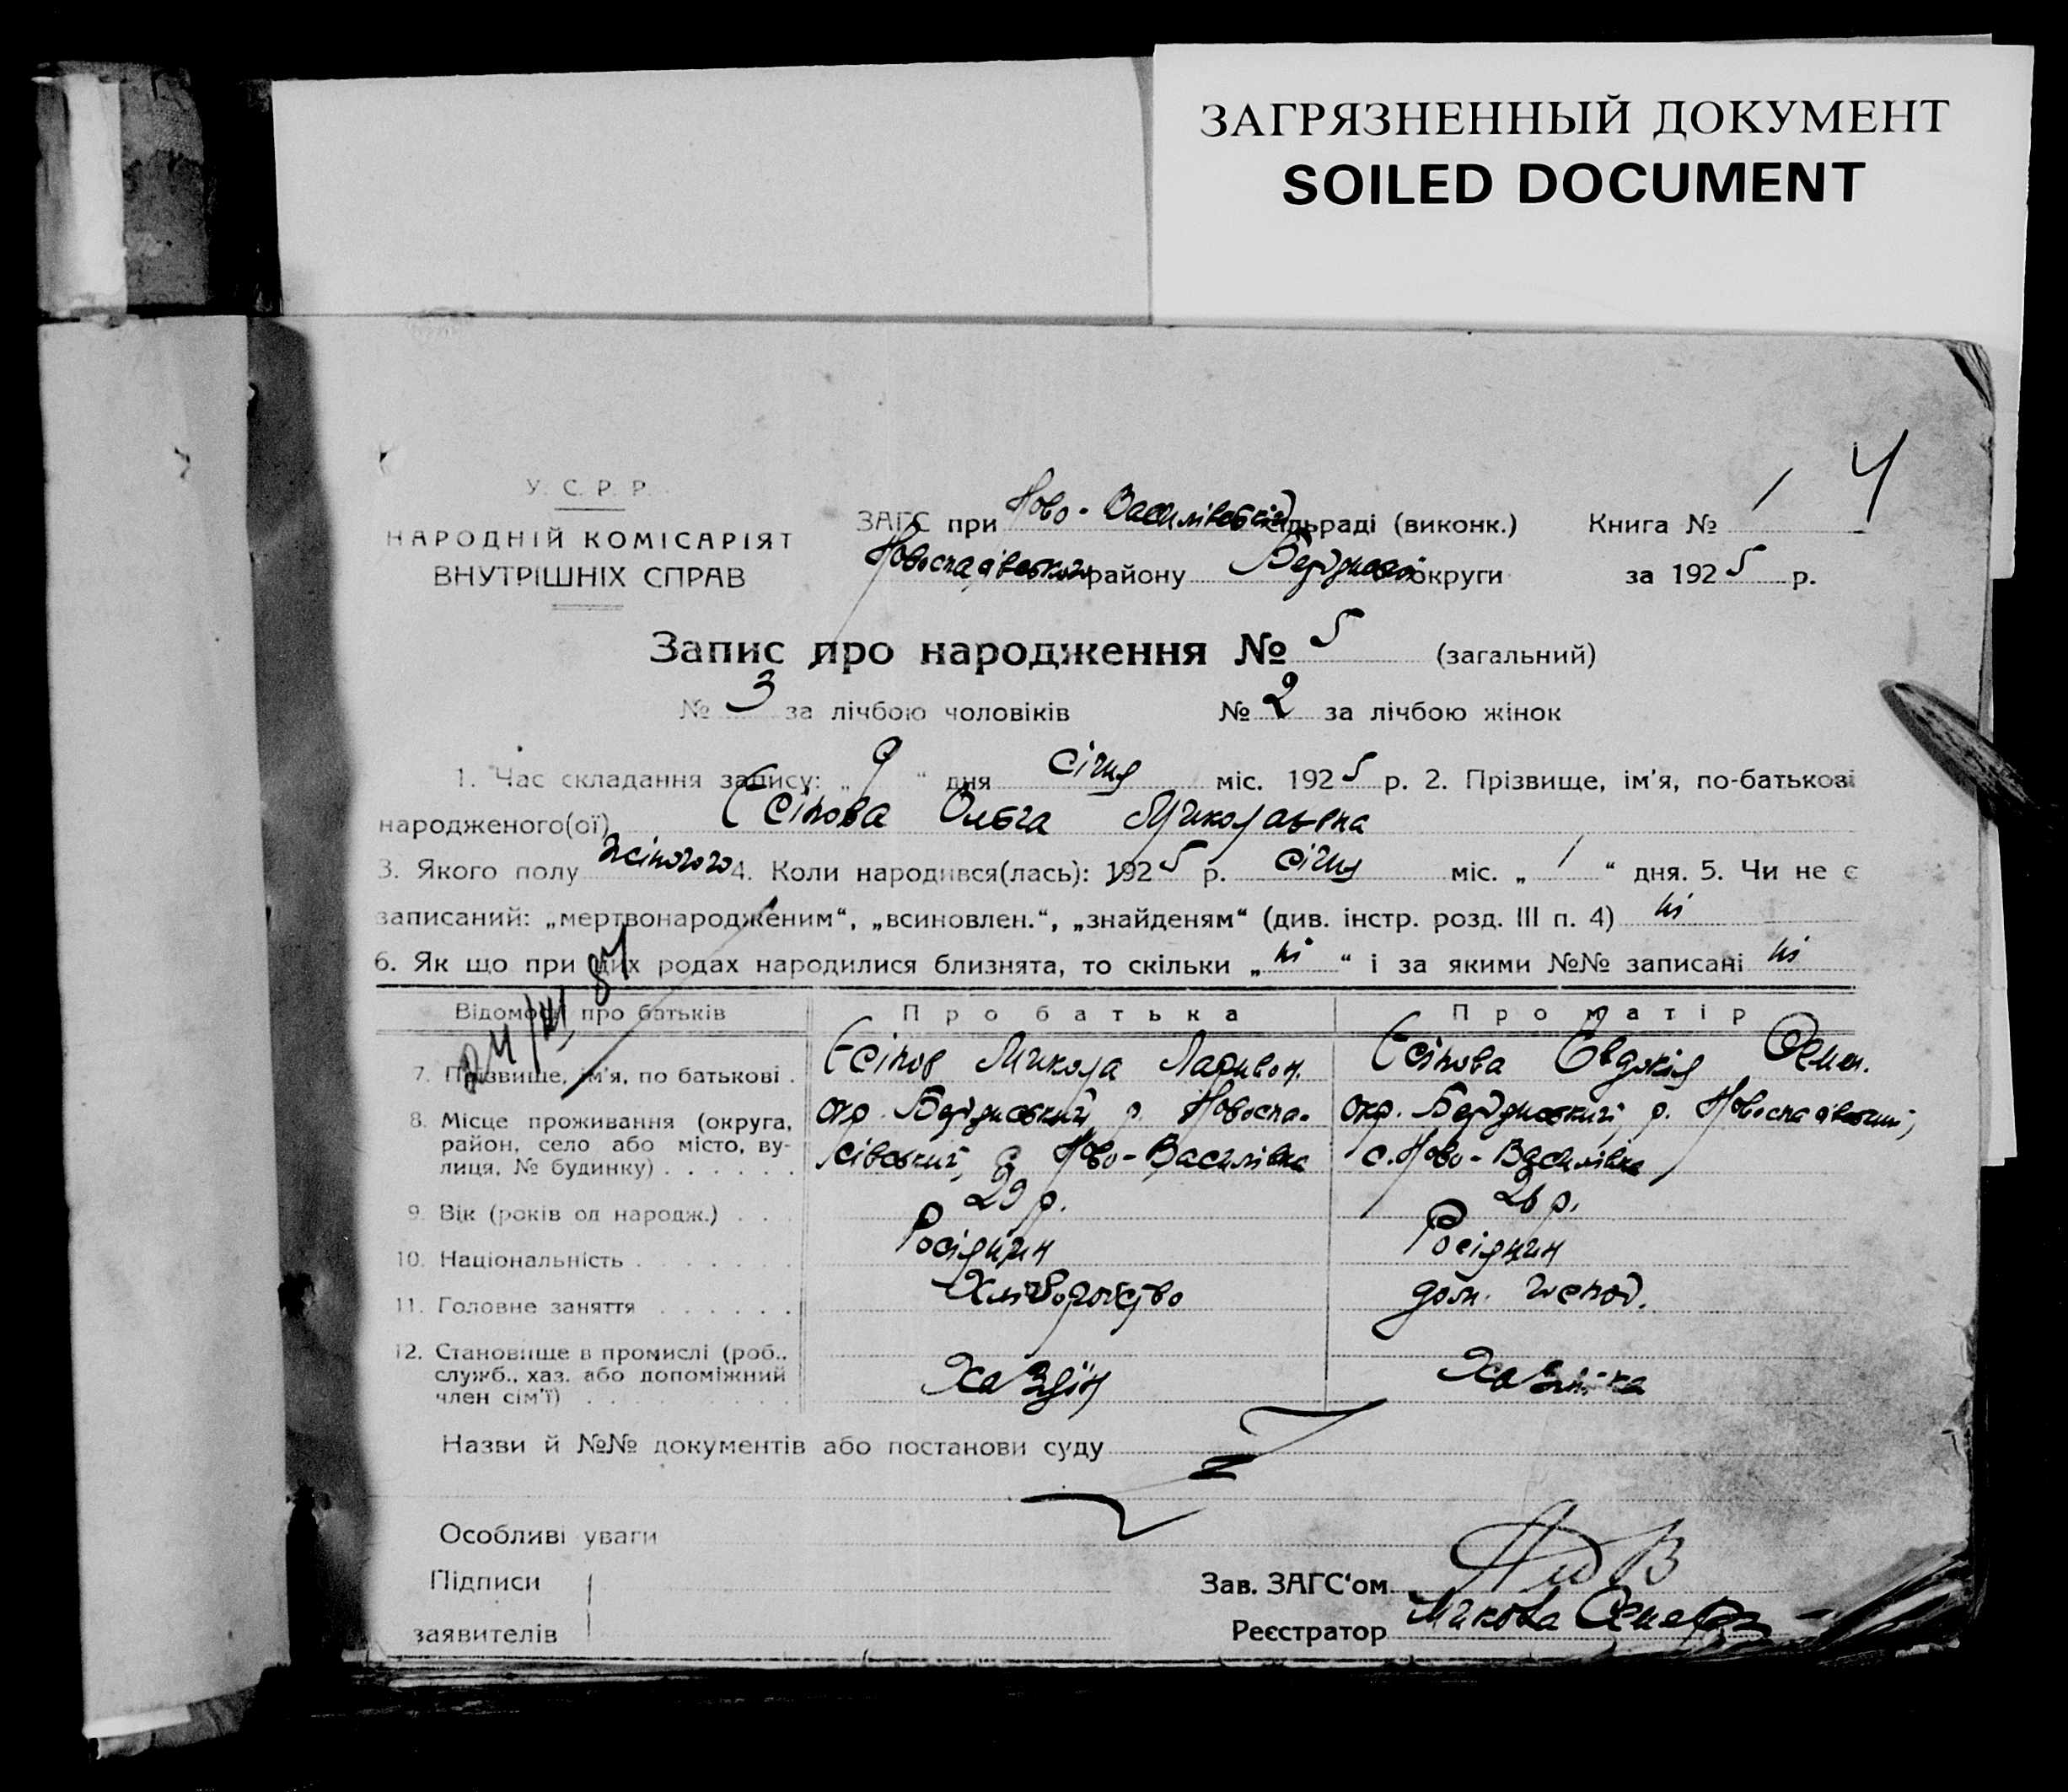 ЗАГРЯЗНЕННЫЙ ДОКУМЕНТ
SOILED DOCUMENT
4
У. С. Р. Р.
НАРОДНІЙ КОМІСАРІЯТ
ВНУТРІШНІХ СПРАВ
ЗАГС при Ново-Василівській сільраді (виконк.) Книга № 1
Новоспасівського району Бердянської округи за 1925 р.
Запис про народження № 5 (загальний)
№ 3 за лічбою чоловіків № 2 за лічбою жінок
1. Час складання запису: „ 9 “ дня січня міс. 1925 р. 2. Прізвище, ім'я, по-батькові
народженого(ої) Єсіпова Ольга Миколаевна
3. Якого полу жіночого 4. Коли народився(лась): 1925 р. січня міс. „ 1 “ дня. 5. Чи не є
записаний: „мертвонародженим“, „всиновлен.“, „знайденям“ (див. інстр. розд. III п. 4) ні
6. Як що при цих родах народилися близнята, то скільки „ ні “ і за якими №№ записані ні
Відомости про батьків Про батька Про матір
7. Прізвище, ім'я, по батькові . Єсіпов Микола Ларивон. Єсіпова Євдокія Семен.
8. Місце проживання (округа, окр. Бердянський р. Новоспа- окр. Бердянський р. Новоспасівський,
район, село або місто, ву-
лиця, № будинку) . . . . . . сівський, с. Ново-Василівка с. Ново-Василівка
9. Вік (років од народж.) . . . 29 р. 26 р.
10. Національність . . . . . . . Росіянин Росіянин
11. Головне заняття . . . . . . Хліборобство дом. господ.
12. Становище в промислі (роб.,
служб., хаз. або допоміжний Хазяїн Хазяйка
член сім'ї) . . . . . . . . .
Назви й №№ документів або постанови суду
Особливі уваги
Підписи Зав. ЗАГС'ом
заявителів Реєстратор